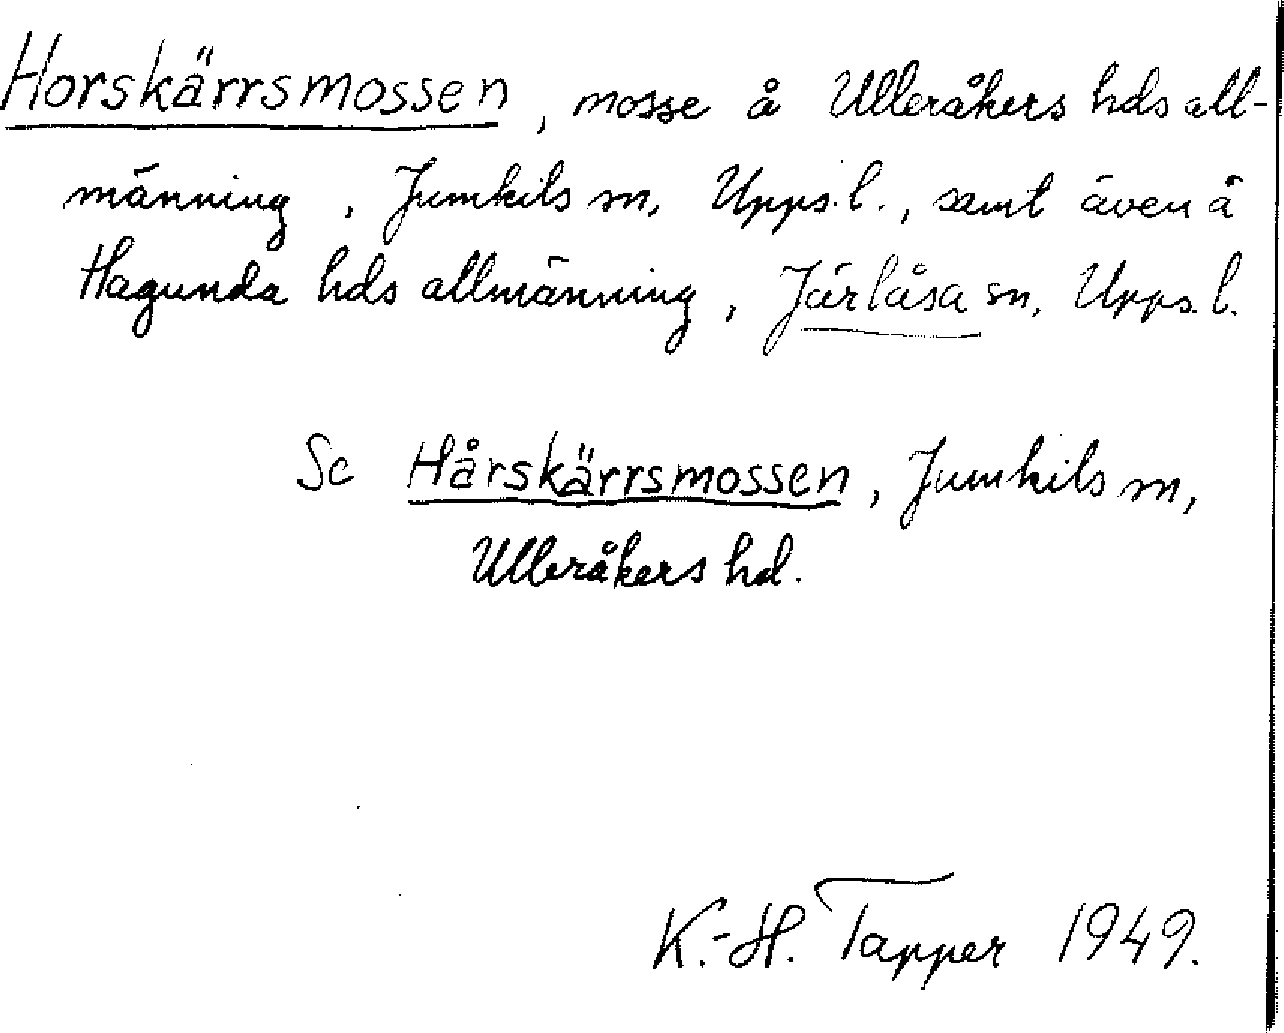 Horskärrsmossen, mosse å Ulleråkers hds all-
männing, Jumkils sn, Upps. l., samt även å
Hagunda hds allmänning, Järlåsa sn, Upps. l.
Se Hårskärrsmossen, Jumkils sn,
Ulleråkers hd.
K.-H. Tapper 1949.